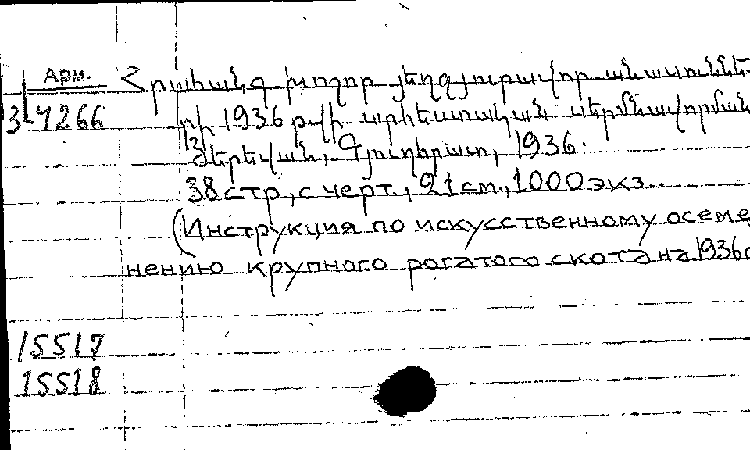 Арм.
Հրահանգ խոշոր յեղջյուրավոր անասուննե-
3-4266
րի 1936 թվի արհեստական սերմնավորման
Յերեվան, Գյուղհրատ, 1936.
38 стр., с черт., 21 см., 1000 экз.
(Инструкция по искусственному осеме
нению крупного рогатого скота на 1936 г
15517
15518